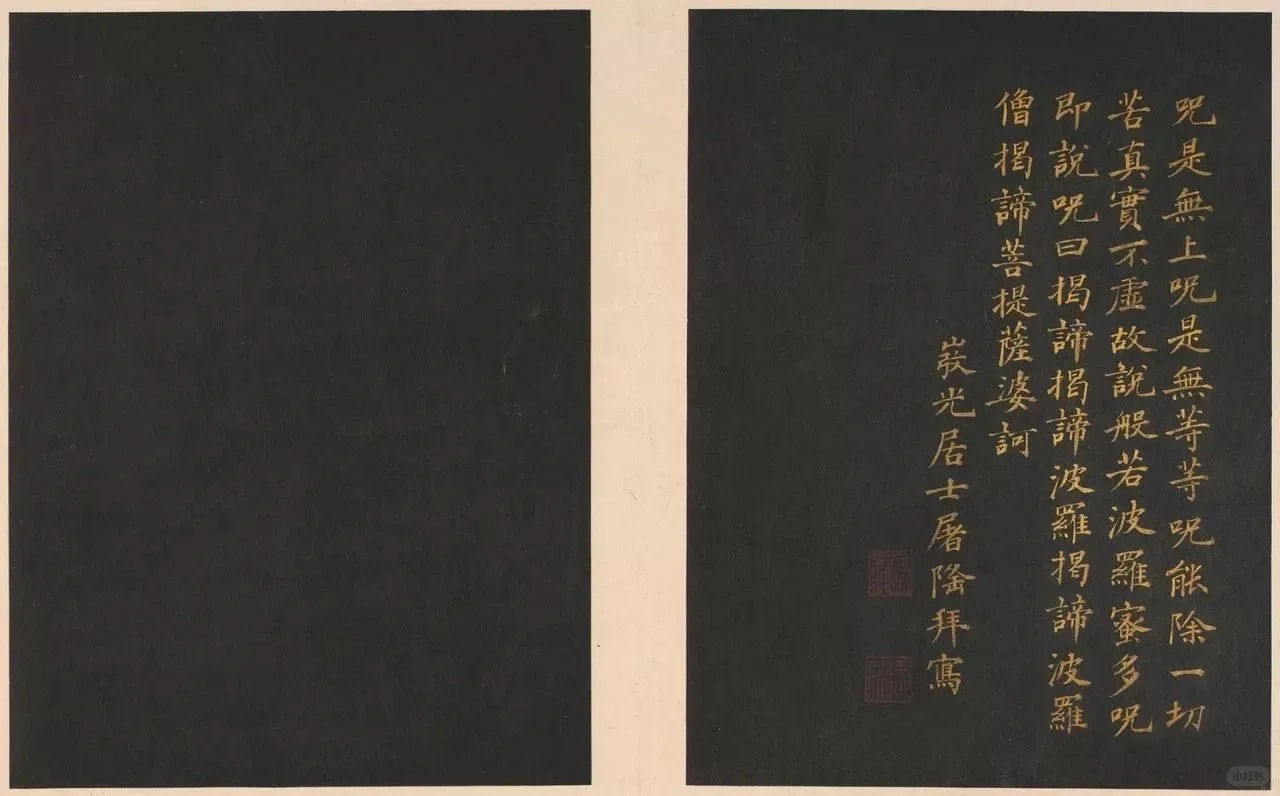 呪是無上呪是無等等呪能除一切
苦真實不虛故說般若波羅蜜多呪
即說呪曰揭諦揭諦波羅揭諦波羅
僧揭諦菩提薩婆訶
光居士屠隆拜寫
小红书